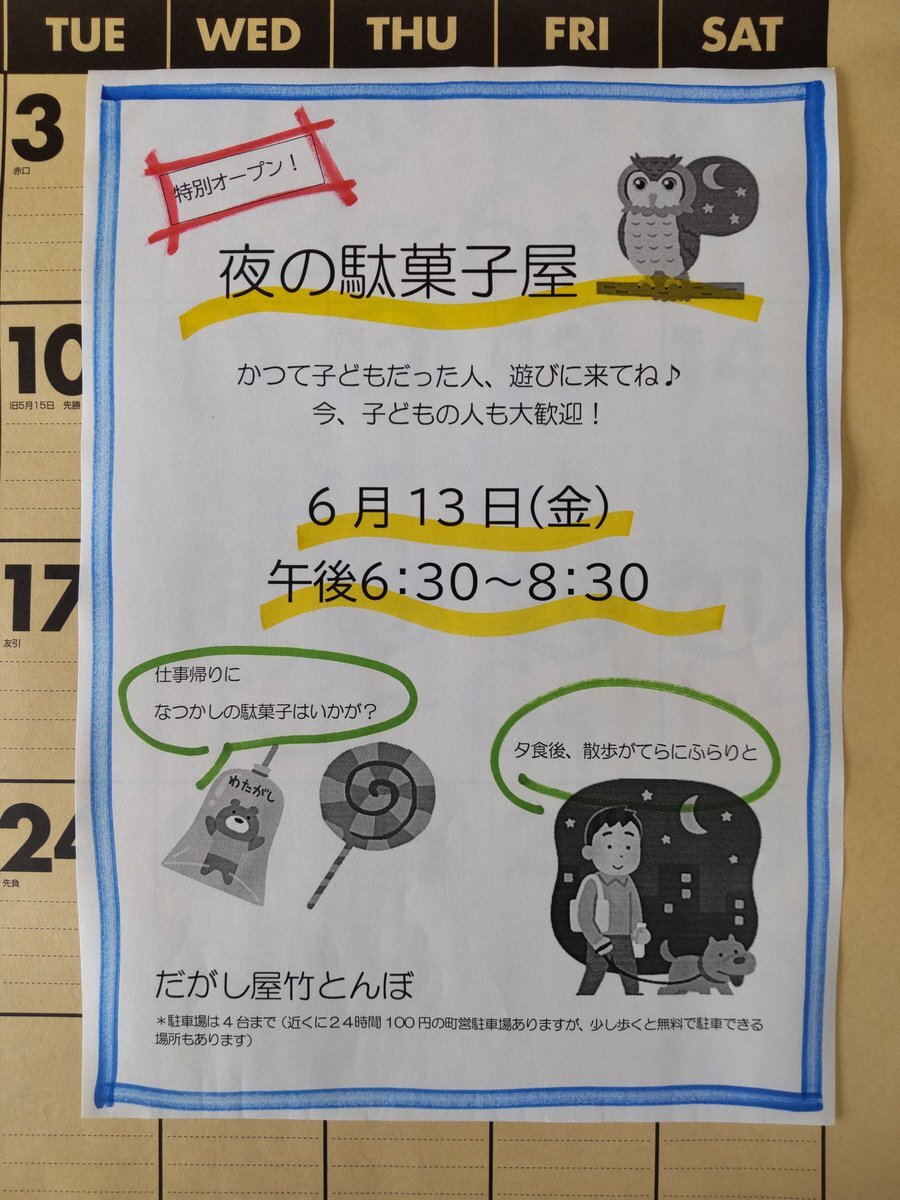 TUE WED THU FRI SAT
3
赤口
10
旧5月15日 先勝
17
友引
24
先負
特別オープン！
夜の駄菓子屋
かつて子どもだった人、遊びに来てね♪
今、子どもの人も大歓迎！
6月13日(金)
午後6：30～8：30
仕事帰りに
なつかしの駄菓子はいかが？
わたがし
夕食後、散歩がてらにふらりと
だがし屋竹とんぼ
＊駐車場は4台まで（近くに２４時間100円の町営駐車場ありますが、少し歩くと無料で駐車できる
場所もあります）